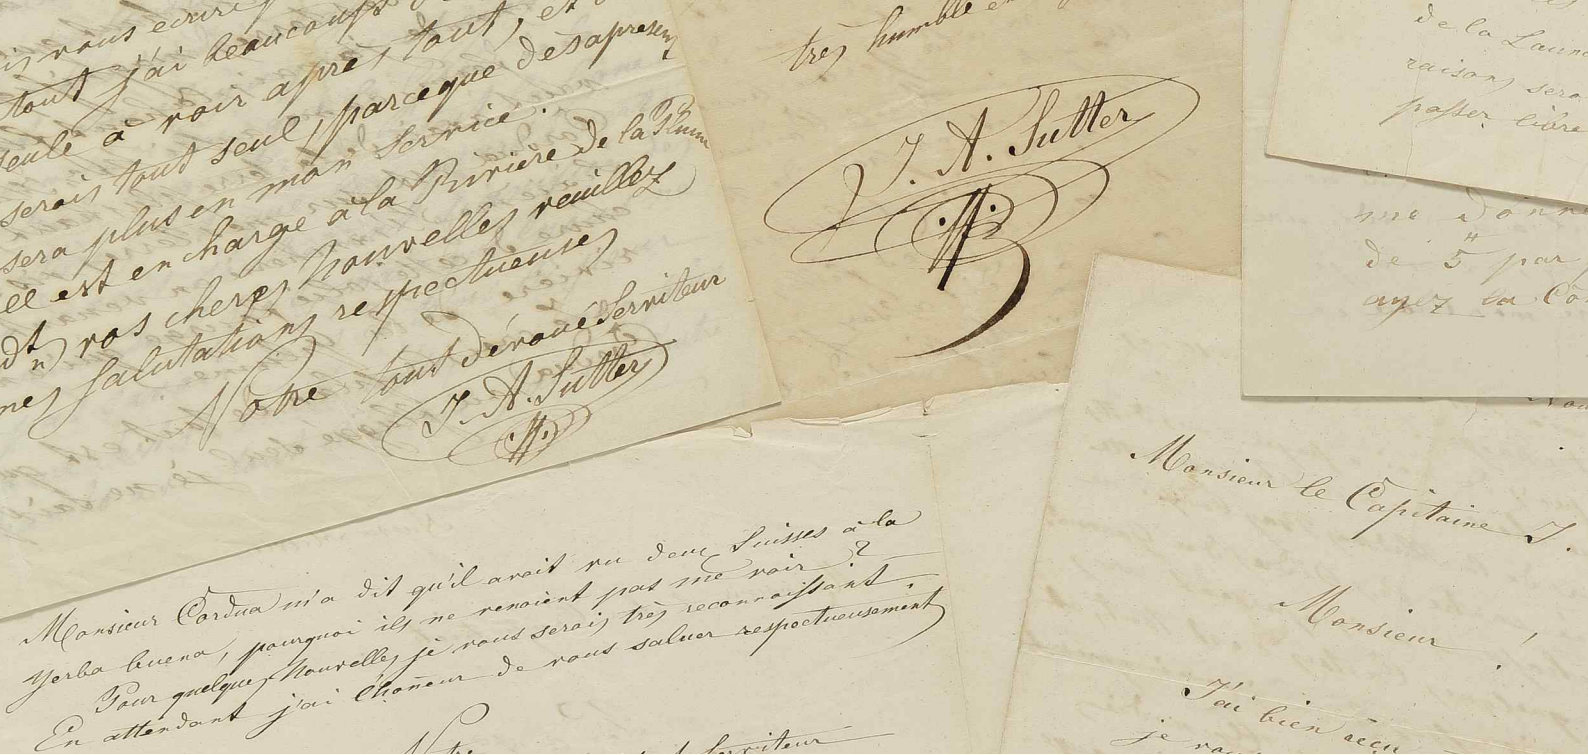 is vous écrire
tout j'ai beaucoup
seule à voir après tout, et
serais tout seul, parceque desapresent
sera plus en mon Service.
elle est en charge à la Rivière de la Plum
vos cheres Nouvelles veuillez
mes Salutations respectueuses
Votre tout dévoué Serviteur
J. A. Sutter
très humble e
J. A. Sutter
de la
raisons sera
passer libre
me donn
de 5 par
ayez la Co
Monsieur Cordua m'a dit qu'il avait vu deux Suisses à la
Yerba buena, pourquoi ils ne venoient pas me voir?
Pour quelques Nouvelles je vous serais très reconnaissant.
En attendant j'ai l'honneur de vous saluer respectueusement
Votre
Serviteur
Monsieur le Capitaine J.
Monsieur!
J'ai bien reçu
je vous